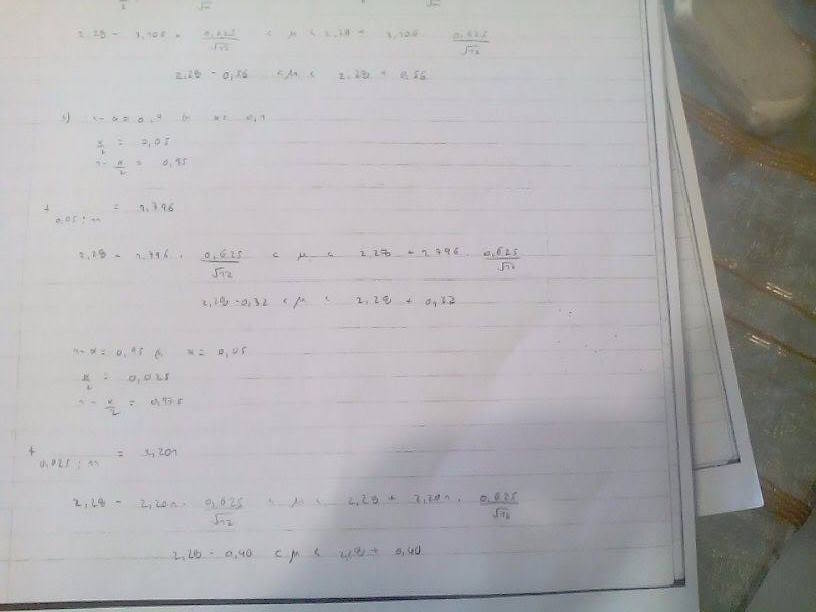 2,28 - 3,106 · 0,625/√12 < μ < 2,28 + 3,106 · 0,625/√12
2,28 - 0,56 < μ < 2,28 + 0,56
1 - α = 0,9 α = 0,1
α/2 = 0,05
1 - α/2 = 0,95
t 0,05 ; 11 = 1,796
2,28 - 1,796 · 0,625/√12 < μ < 2,28 + 1,796 · 0,625/√12
2,28 - 0,32 < μ < 2,28 + 0,32
1 - α = 0,95 α = 0,05
α/2 = 0,025
1 - α/2 = 0,975
t 0,025 ; 11 = 2,201
2,28 - 2,201 · 0,625/√12 < μ < 2,28 + 2,201 · 0,625/√12
2,28 - 0,40 < μ < 2,28 + 0,40